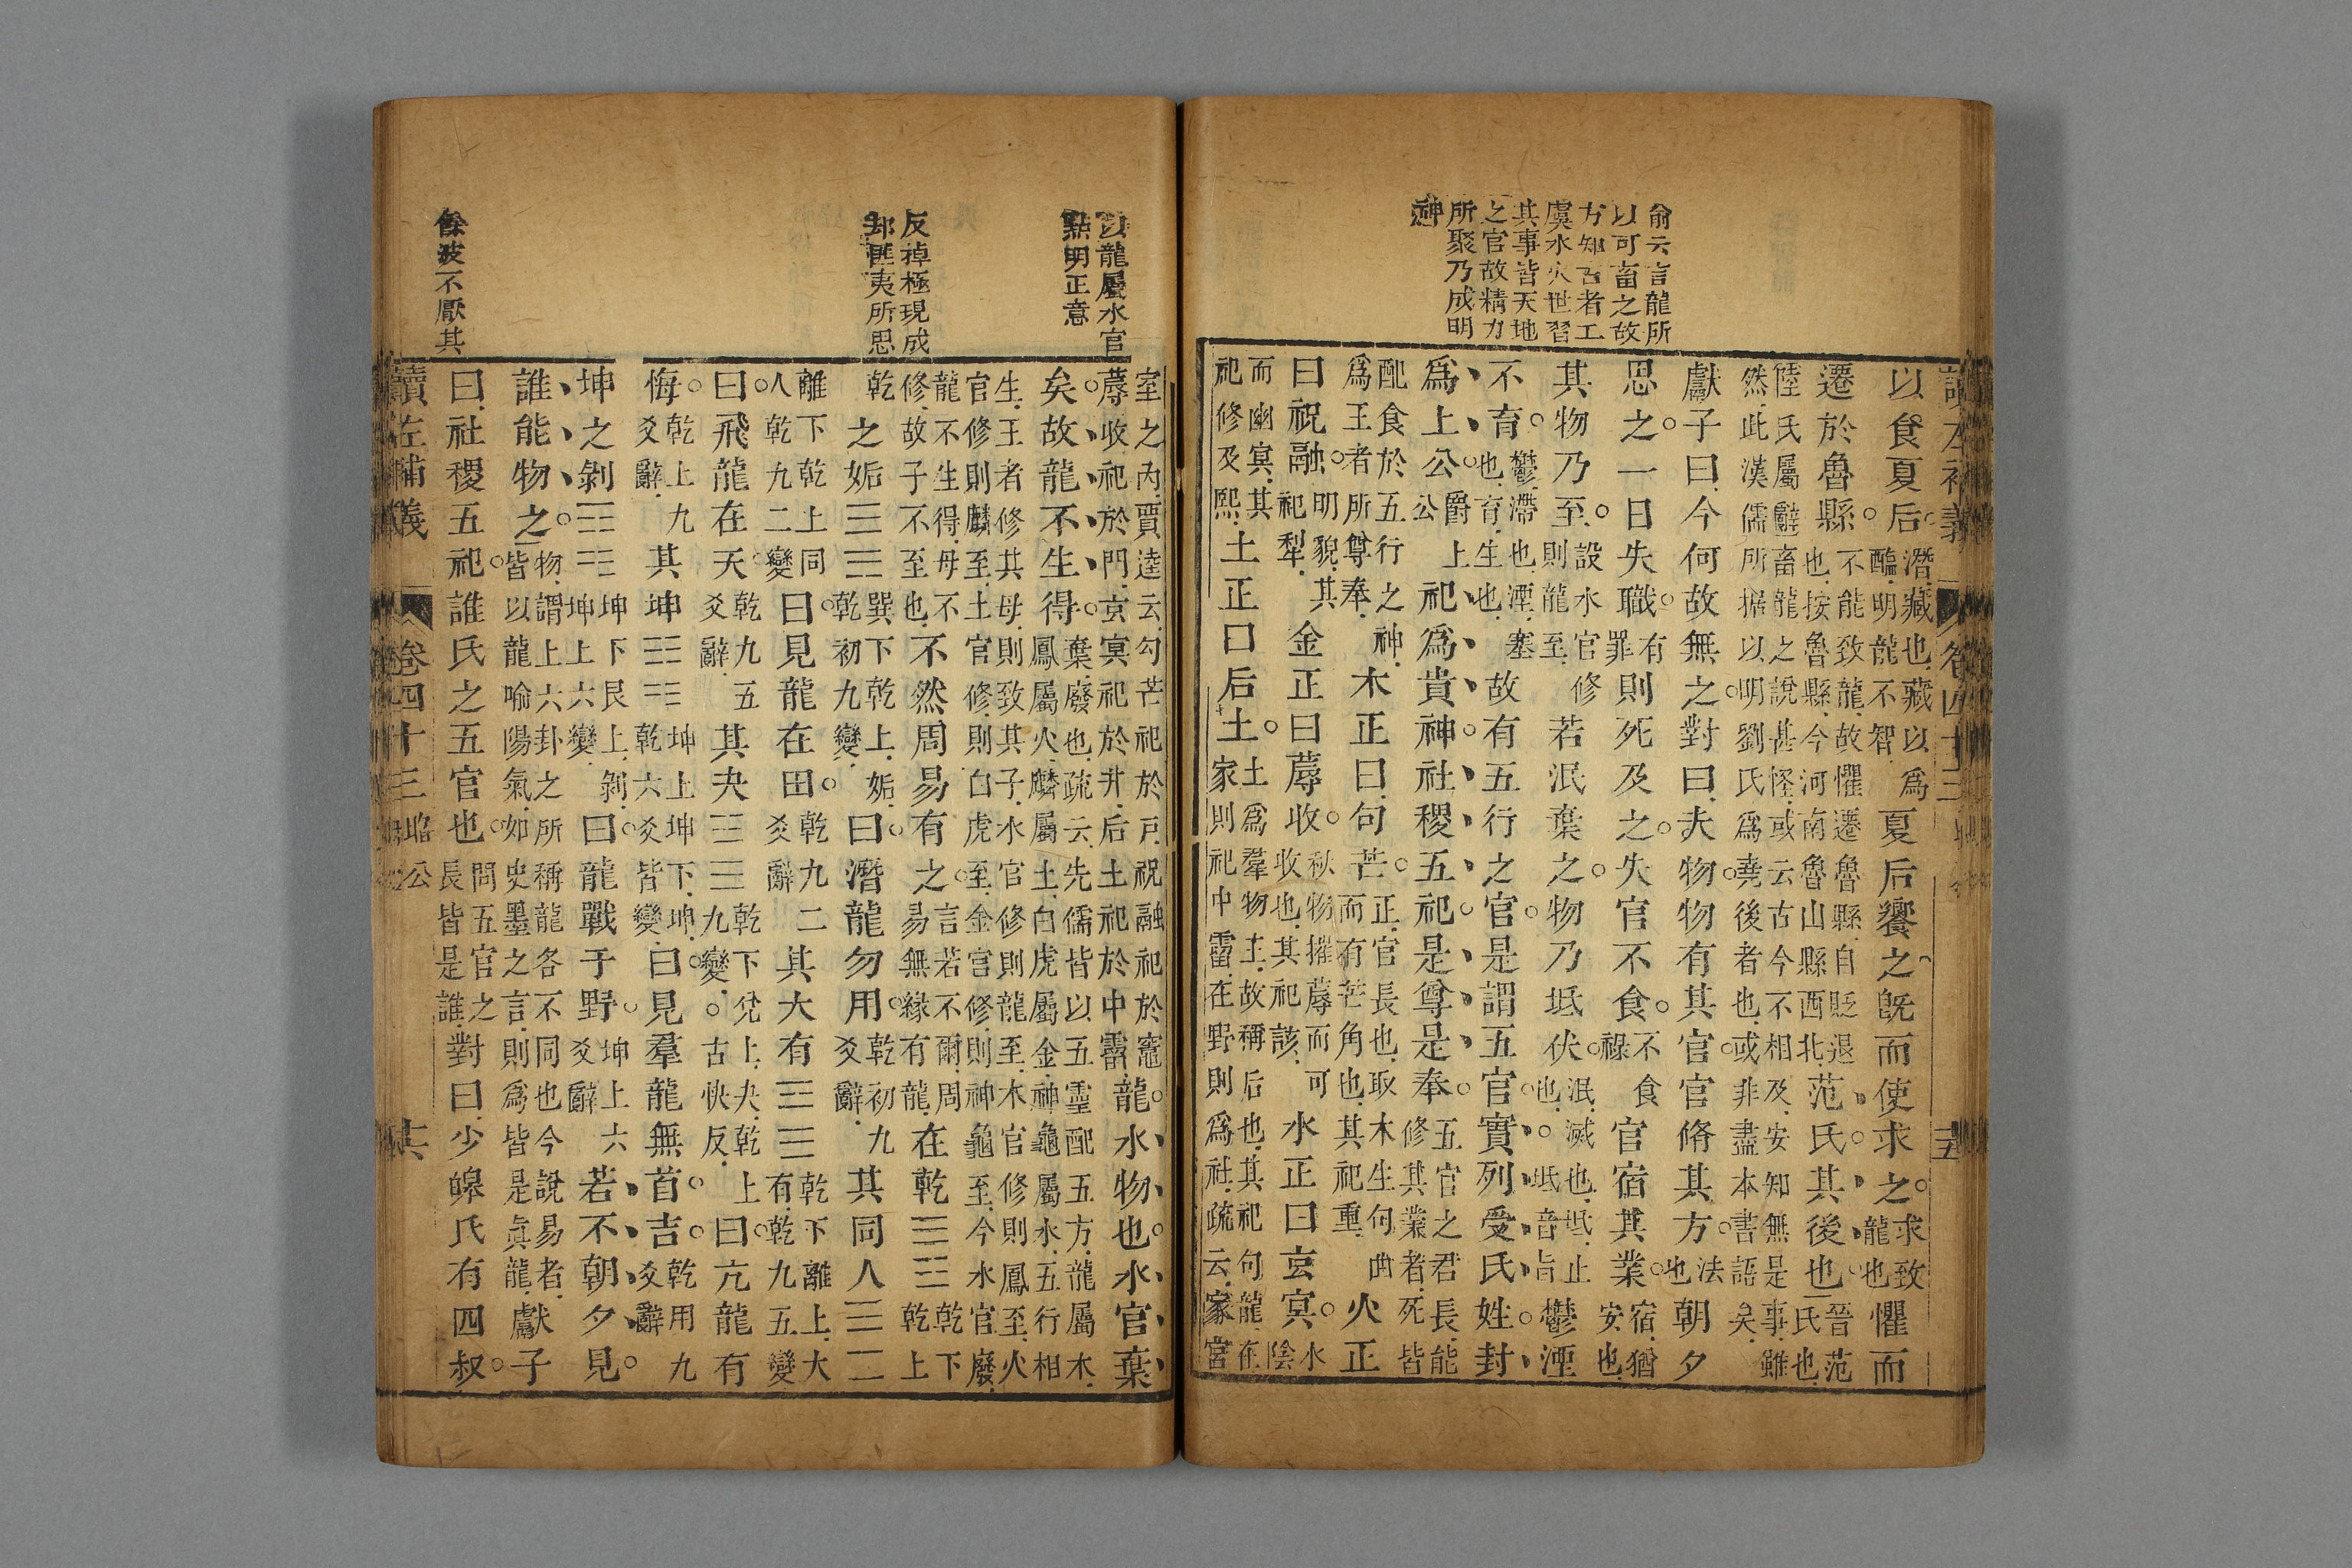 俞云言龍所
以可畜之故
方知古者工
虞水火世習
其事皆天地
之官故精力
所聚乃成明
神
以食夏后潛藏也藏以爲醢明龍不智夏后饗之既而使求之求致龍也懼而
遷於魯縣不能致龍故懼遷魯縣自貶退也按魯縣今河南魯山縣西北范氏其後也晉范氏也
陸氏屬辭畜龍之說甚怪或云古今不相及安知無是事雖然此漢儒所據以明劉氏爲堯後者也或非盡本書語矣
獻子曰今何故無之對曰夫物物有其官官脩其方法也朝夕
思之一日失職有罪則死及之失官不食不食祿官宿其業宿猶安也
其物乃至設水官修則龍至若泯棄之物乃坻伏泯滅也坻止也坻音旨鬱湮
不育鬱滯也湮塞也育生也故有五行之官是謂五官實列受氏姓封
爲上公爵上公祀爲貴神社稷五祀是尊是奉五官之君長能修其業者死皆
配食於五行之神爲王者所尊奉木正曰句芒正官長也取木生句曲而有芒角也其祀重火正
曰祝融明貌其祀犁金正曰蓐收秋物摧蓐而可收也其祀該水正曰玄冥水陰
而幽冥其祀修及熙土正曰后土土爲羣物主故稱后也其祀句龍在家則祀中霤在野則爲社疏云家宮
以龍屬水官
點明正意
反掉極現成
却匪夷所思
餘波不厭其
室之內賈逵云勾芒祀於戶祝融祀於竈蓐收祀於門玄冥祀於井后土祀於中霤龍水物也水官棄
矣故龍不生得棄廢也疏云先儒皆以五靈配五方龍屬木鳳屬火麟屬土白虎屬金神龜屬水五行相
生王者修其母則致其子水官修則龍至木官修則鳳至火官修則麟至土官修則白虎至金官修則神龜至今水官廢
龍不生得母不修故子不至也不然周易有之言若不爾周易無緣有龍在乾䷀乾下乾上
乾之姤䷫巽下乾上姤乾初九變曰潛龍勿用乾初九爻辭其同人䷌
離下乾上同人乾九二變曰見龍在田乾九二爻辭其大有䷍乾下離上大有乾九五變
曰飛龍在天乾九五爻辭其夬䷪乾下兌上夬乾上九變古快反曰亢龍有
悔乾上九爻辭其坤䷁坤上坤下乾六爻皆變曰見羣龍無首吉乾用九爻辭
坤之剝䷖坤下艮上剝坤上六變曰龍戰于野坤上六爻辭若不朝夕見
誰能物之物謂上六卦之所稱龍各不同也今說易者皆以龍喻陽氣如史墨之言則爲皆是眞龍獻子
曰社稷五祀誰氏之五官也問五官之長皆是誰對曰少皞氏有四叔
讀左補義 卷四十三 昭公 十六